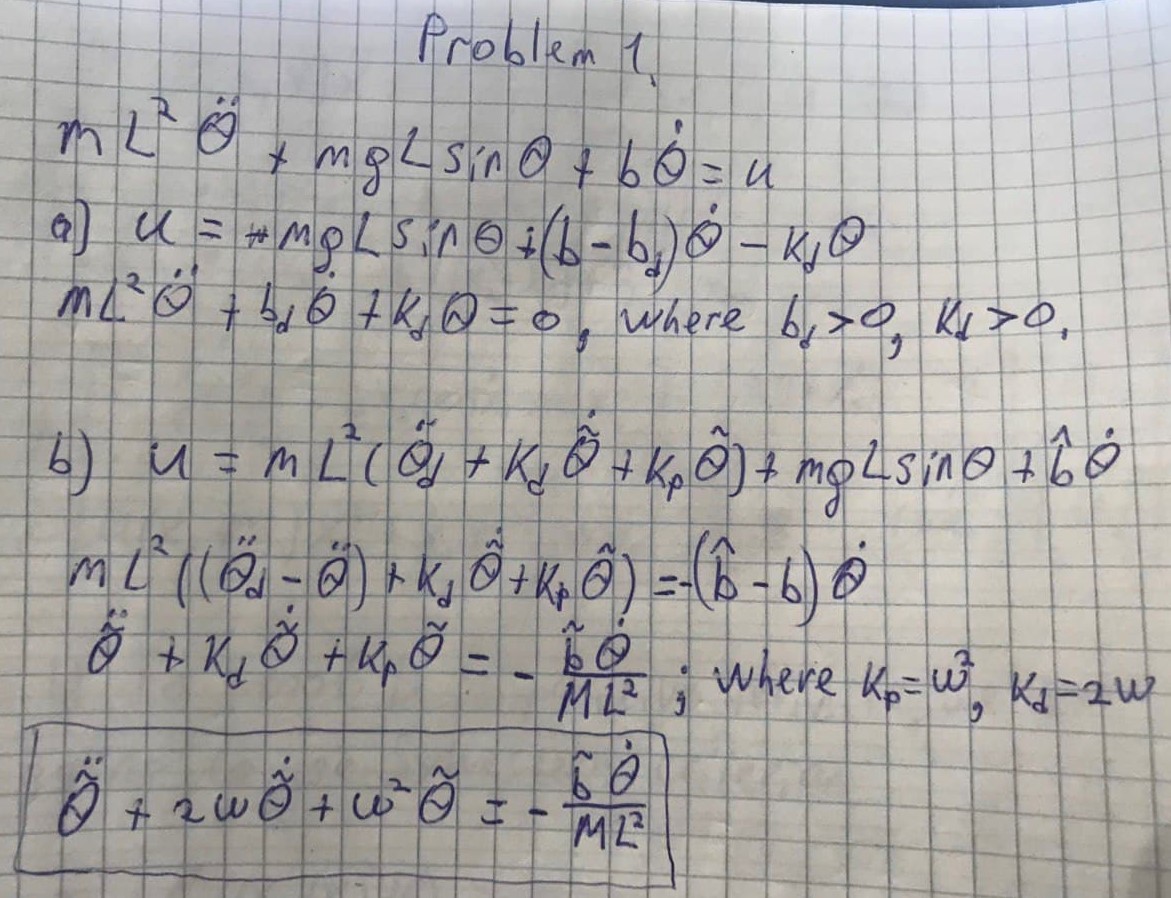 Problem 1.
mL² θ̈ + mgL sinθ + bθ̇ = u
a) u = +mgL sinθ + (b - b_d)θ̇ - k_dθ
mL² θ̈ + b_d θ̇ + k_d θ = 0, where b_d > 0, k_d > 0.
b) u = mL²(θ̈_d + k_d θ̃̇ + k_p θ̃) + mgL sinθ + b̂ θ̇
mL²((θ̈_d - θ̈) + k_d θ̃̇ + k_p θ̃) = -(b̂ - b) θ̇
θ̃̈ + k_d θ̃̇ + k_p θ̃ = - b̃ θ̇ / ML² ; where k_p = w², k_d = 2w
θ̃̈ + 2w θ̃̇ + w² θ̃ = - b̃ θ̇ / ML²